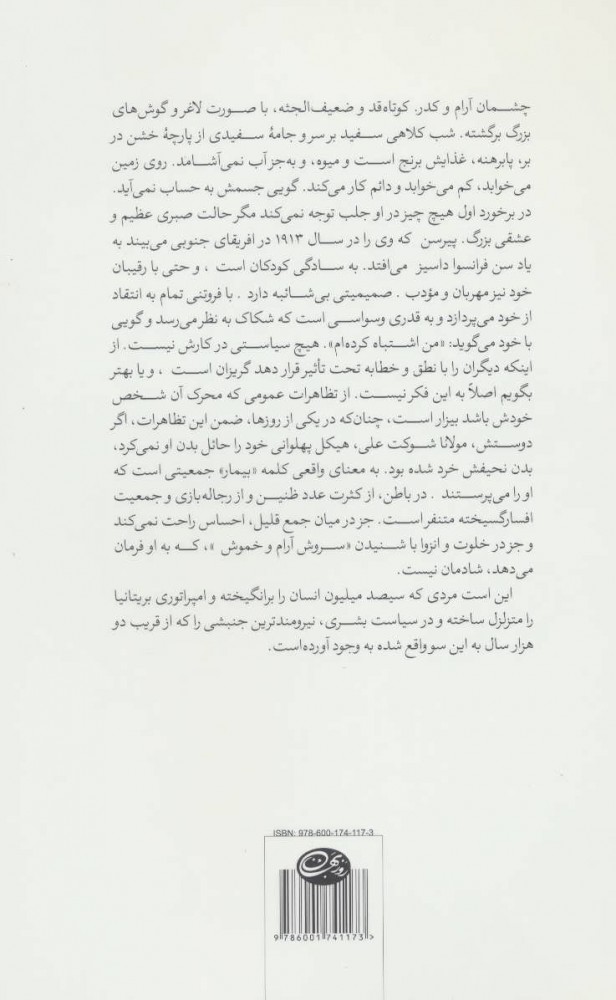 چشمان آرام و کدر. کوتاه‌قد و ضعیف‌الجثه، با صورت لاغر و گوش‌های
بزرگ برگشته. شب کلاهی سفید بر سر و جامهٔ سفیدی از پارچهٔ خشن در
بر، پابرهنه، غذایش برنج است و میوه، و به‌جز آب نمی‌آشامد. روی زمین
می‌خوابد، کم می‌خوابد و دائم کار می‌کند. گویی جسمش به حساب نمی‌آید.
در برخورد اول هیچ چیز در او جلب توجه نمی‌کند مگر حالت صبری عظیم و
عشقی بزرگ. پیرسن که وی را در سال ۱۹۱۳ در افریقای جنوبی می‌بیند به
یاد سن فرانسوا داسیز می‌افتد. به سادگی کودکان است ، و حتی با رقیبان
خود نیز مهربان و مؤدب . صمیمیتی بی‌شائبه دارد . با فروتنی تمام به انتقاد
از خود می‌پردازد و به قدری وسواسی است که شکاک به نظر می‌رسد و گویی
با خود می‌گوید: «من اشتباه کرده‌ام». هیچ سیاستی در کارش نیست. از
اینکه دیگران را با نطق و خطابه تحت تأثیر قرار دهد گریزان است ، و یا بهتر
بگویم اصلاً به این فکر نیست. از تظاهرات عمومی که محرک آن شخص
خودش باشد بیزار است، چنان‌که در یکی از روزها، ضمن این تظاهرات، اگر
دوستش، مولانا شوکت علی، هیکل پهلوانی خود را حائل بدن او نمی‌کرد،
بدن نحیفش خرد شده بود. به معنای واقعی کلمه «بیمار» جمعیتی است که
او را می‌پرستند . در باطن، از کثرت عدد ظنین و از رجاله‌بازی و جمعیت
افسارگسیخته متنفر است. جز در میان جمع قلیل، احساس راحت نمی‌کند
و جز در خلوت و انزوا با شنیدن «سروش آرام و خموش »، که به او فرمان
می‌دهد، شادمان نیست.
این است مردی که سیصد میلیون انسان را برانگیخته و امپراتوری بریتانیا
را متزلزل ساخته و در سیاست بشری، نیرومندترین جنبشی را که از قریب دو
هزار سال به این سو واقع شده به وجود آورده‌است.
ISBN: 978-600-174-117-3
روزبهان
9 786001 741173>